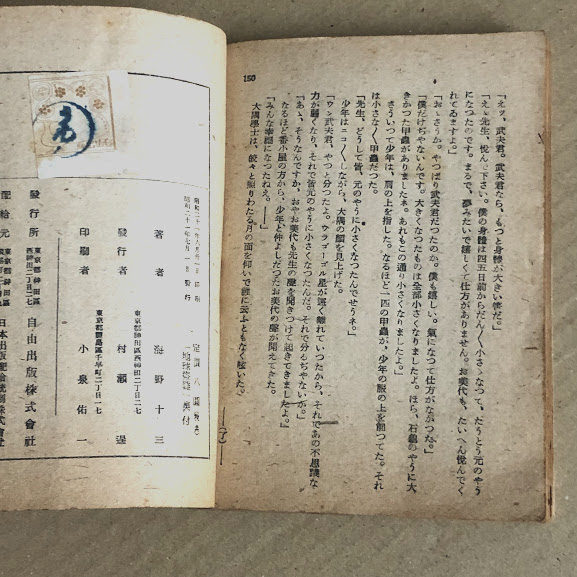 150
「えッ、武夫君。武夫君なら、もつと身體が大きい筈だ。」
「えゝ先生、悅んで下さい。僕の身體は四五日前からだん〳〵小さくなつて、たうとう元のやう
になつたのです。まるで、夢みたいで嬉しくて仕方がありません。お美代も、たいへん悅んでく
れてゐますよ。」
「おゝさうか。やつぱり武夫君だつたのか。僕も嬉しい。氣になつて仕方がなかつた。」
「僕だけぢやないんです。大きくなつたものは全部小さくなりましたよ。ほら、石龜のやうに大
きかつた甲蟲がありましたネ。あれもこの通り小さくなりましたよ。」
さういつて少年は、肩の上を指した。なるほど一匹の甲蟲が、少年の服の上を匍つてた。それ
は小さな小さな甲蟲だつた。
「先生、どうして皆、元のやうに小さくなつたんでせうネ。」
少年はニコ〳〵しながら、大隅の顏を見上げた。
「ウン武夫君、やつと分つたよ。ウラゴーゴル星が遠く離れていつたから、それであの不思議な
力が弱くなり、それで皆元のやうに小さくなつたんだ。それで分るぢやないか。」
「あゝ、さうなんですか、おやお美代も先生の聲を聞きつけて起きてきましたよ。」
なるほど番小屋の方から、少年と仲よしだつたお美代の聲が聞えてきた。
「みんな幸福になつたねえ。――」
大隅學士は、皎々と照りわたる月の面を仰いで誰に云ふともなく呟いた。
――(了)――
昭和二十一年六月 印刷
昭和二十一年七月一日 發行
定價 八圓
「地球盜難」奧付
著者 海野十三
東京都神田區西神田二丁目二七
發行者 村瀨
東京都豐島區千早町二丁目一七
印刷者 小泉佑一
東京都神田區西神田二丁目
發行所 自由出版株式會社
東京都神田區
配給元 日本出版配給統制株式會社